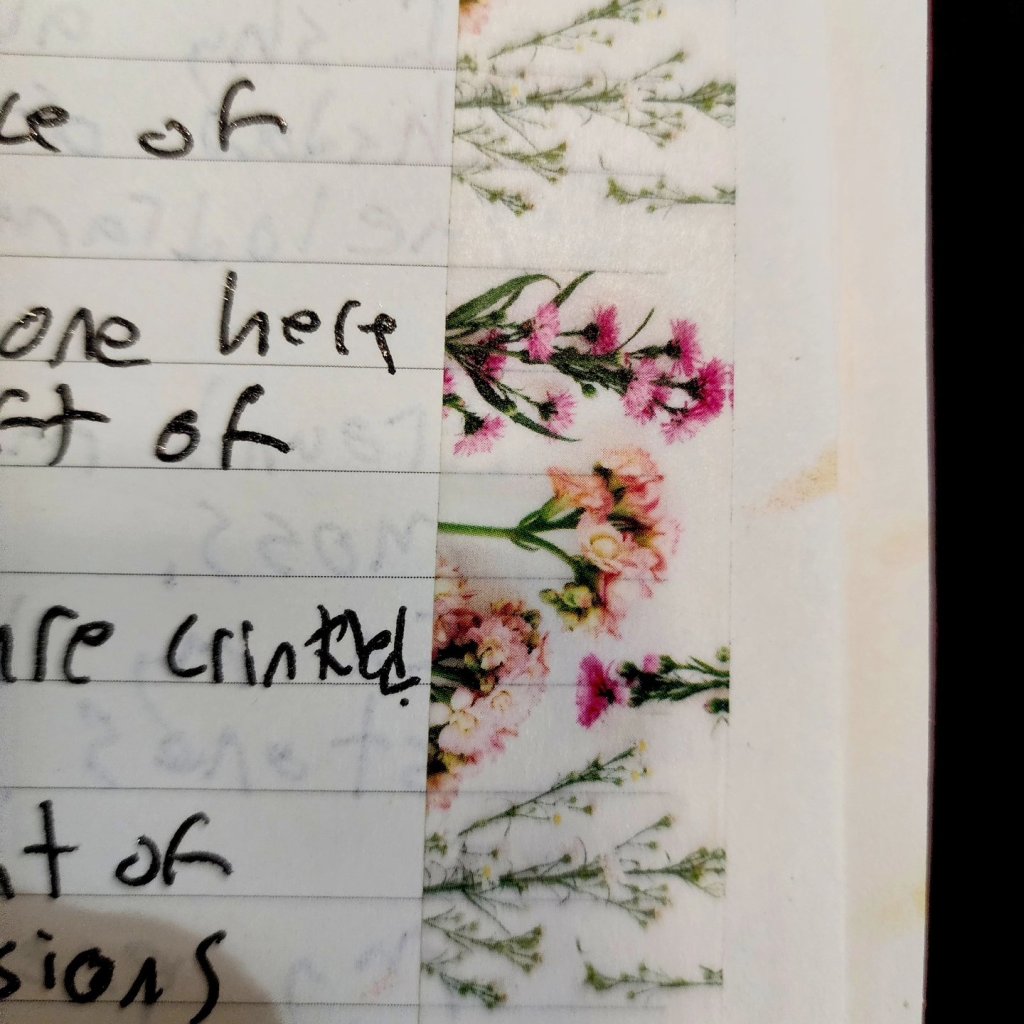 ce of
one here
ft of
are crinkled.
nt of
sions